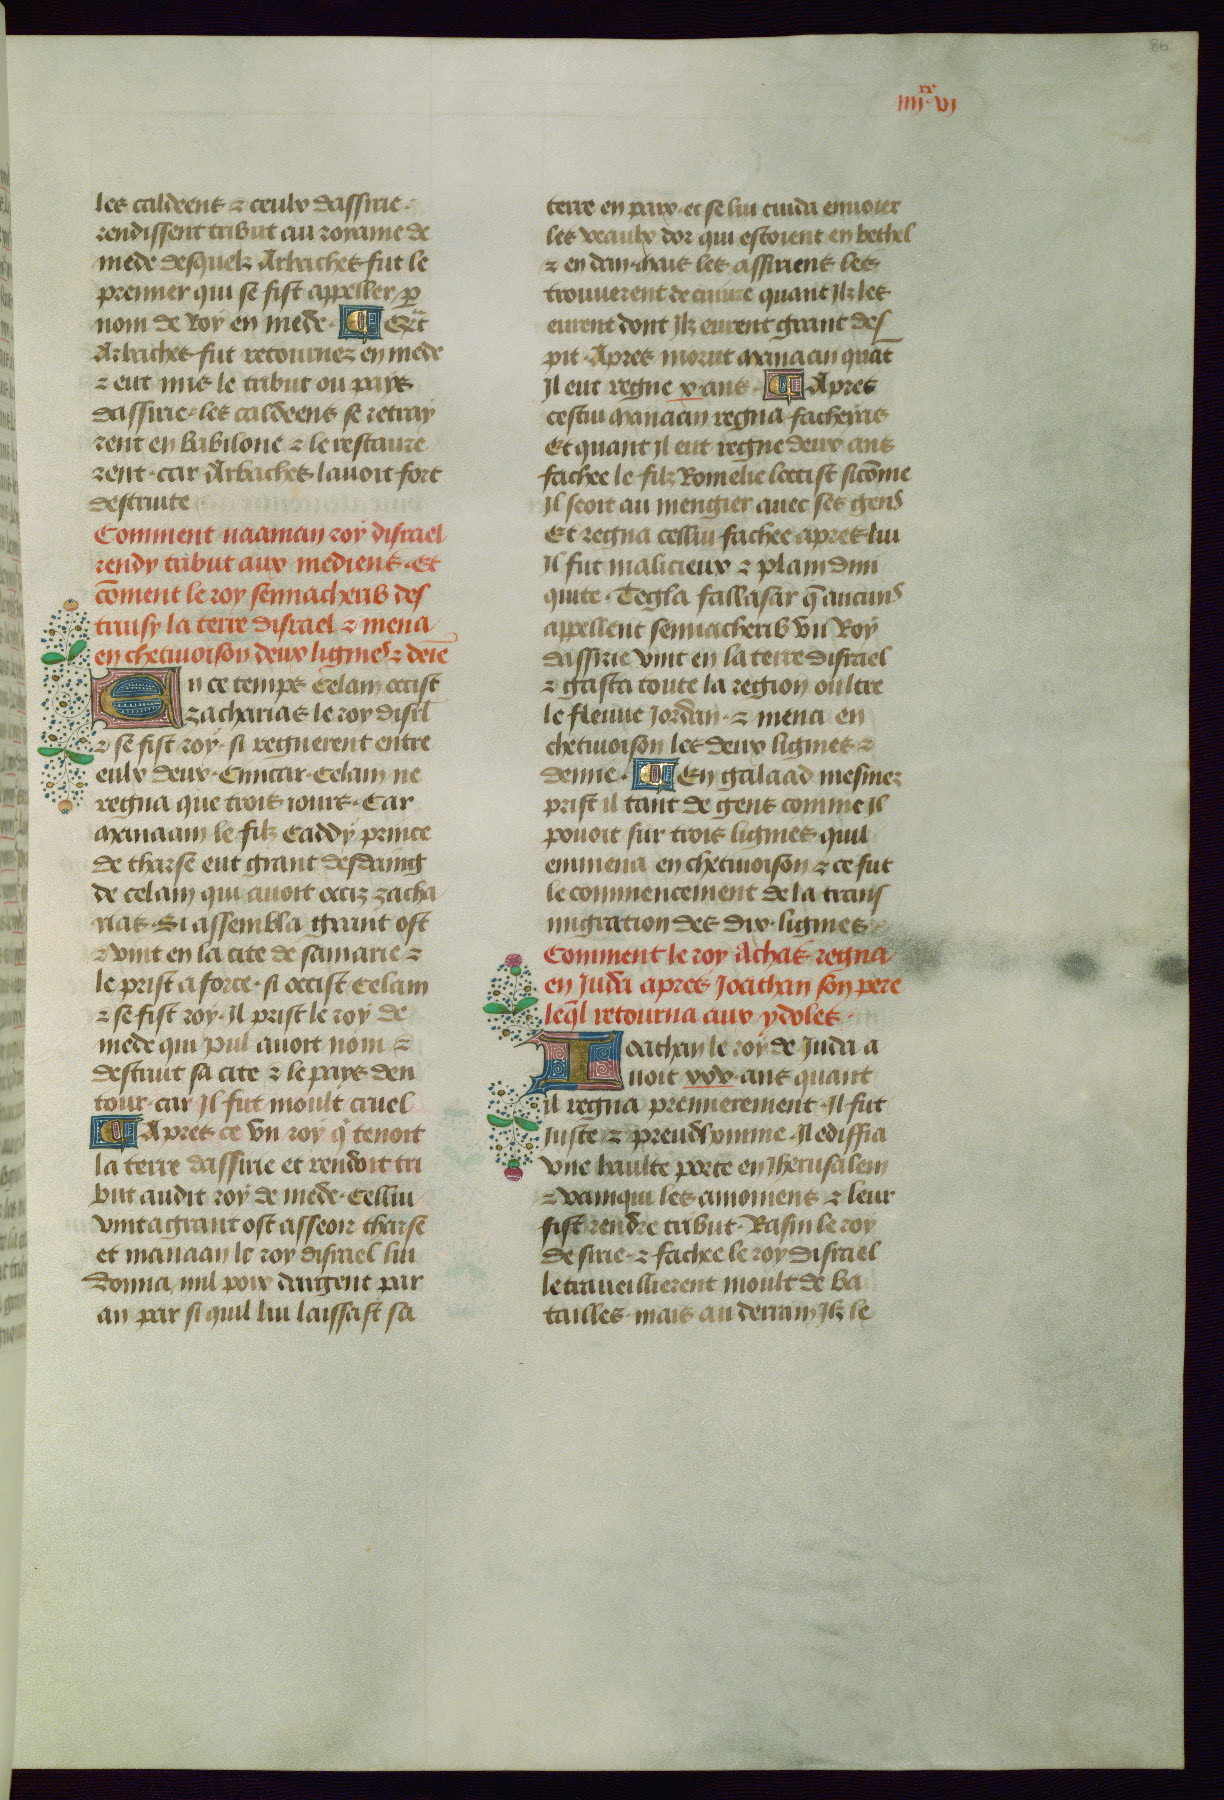 86
iiii·xx vi
les caldeens ⁊ ceulx dassirie·
rendissent tribut au royaume de
mede desquelz Arbaches fut le
premier qui se fist appeller p̱
nom de Roy en mede· Et q̃nt
Arbaches fut retournez en mede
⁊ eut mis le tribut ou pays
dassirie· les caldeens se retray
rent en babilone ⁊ le restaure
rent· car Arbaches lauoit fort
destruite
Comment naaman roy disrael
rendy tribut aux mediens· Et
cõment le roy sennacherib des
truisy la terre disrael ⁊ mena
en chetiuoison deux ligmes ⁊ demẽ
En ce temps Celam occist
zacharias le roy disrl̃
⁊ se fist roy· si regnerent entre
eulx deux· Celam ne
regna que trois iours· Car
Manaam le filz Caddy prince
de tharse eut grant desdaing
de celam qui auoit occiz zacha
rias· Si assembla grant ost
⁊ vint en la cite de samarie ⁊
le prist a force· si occist Celam
⁊ se fist roy· Il prist le roy de
mede qui pul auoit nom ⁊
destruit sa cite ⁊ le pays den
tour· car Il fut moult cruel
Apres ce vn roy q̃ tenoit
la terre dassirie et rendoit tri
but audit roy de mede· Cellui
vint a grant ost asseoir tharse
et manaan le roy disrael lui
donna mil pois dargent par
an par si quil lui laissast sa
terre en paix· et se lui cuida enuoier
les veaulx dor qui estoient en bethel
⁊ en dan· mais les assiriens les
trouuerent de cuiure quant Ilz les
eurent dont Ilz eurent grant des
pit· Apres morut manaan quãt
Il eut regne x· ans· Apres
cestui manaan regna facheias
Et quant Il eut regne deux ans
fachee le filz Romelie loccist sicõme
Il seoit au mengier auec ses gens
Et regna cellui fachee apres lui
Il fut malicieux ⁊ plain dini
quite· Tegla fallasar q̃ aucuns
appellent sennacherib vn Roy
dassirie vint en la terre disrael
⁊ gasta toute la region oultre
le fleuue Jordan· ⁊ mena en
chetiuoison les deux ligmes ⁊
demie· En galaad mesmez
prist il tant de gens comme Il
pouoit sur trois ligmes quil
emmena en chetiuoison ⁊ ce fut
le commencement de la trans
migration des dix ligmes
Comment le roy Achas regna
en Juda apres Joathan son pere
leq̃l retourna aux ydoles·
Ioathan le roy de Juda a
uoit xxv· ans quant
il regna premierement· Il fut
Juste ⁊ preudhomme· Il ediffia
vne haulte porte en Jherusalem
⁊ vainqui les amoniens ⁊ leur
fist rendre tribut· Rasin le roy
de sirie· ⁊ fachee le roy disrael
le traueillierent moult de ba
tailles· mais au derrain Ilz le